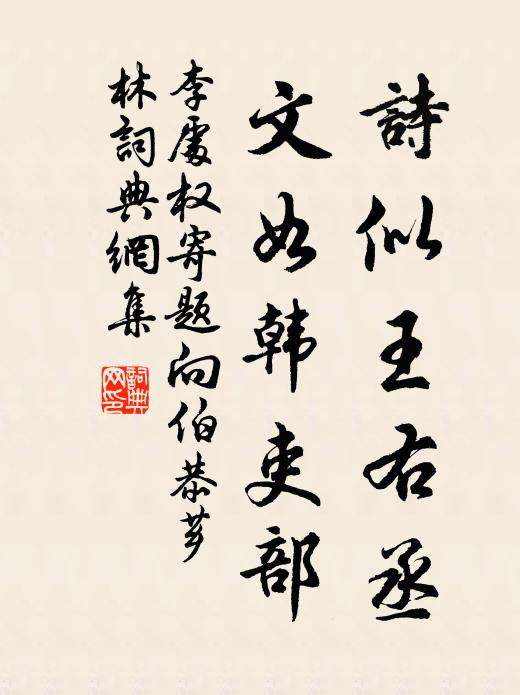 詩似王右丞
文如韩吏部
李處权寄題向伯恭芗
林詞典網集
詞典
网印